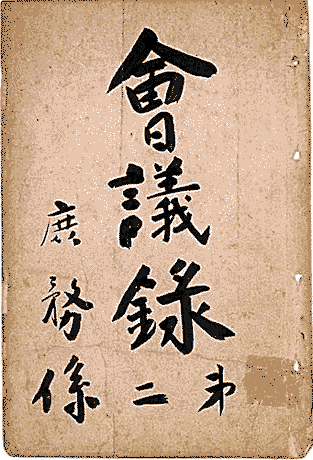 會議錄
第二
庶務係